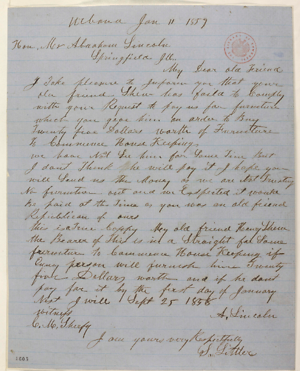 Urbana Jan 11 1859
Hon. Mr Abraham Lincoln
Springfield Ill.
My Dear old Friend
I take pleasure to you that your
old friend Shew has faild to Comply
with your Request to pay us for furniture
which you gave him an order to Buy
Twenty five Dollars worth of Furniture
to Commence House Keeping.
we have Not See him for Some Time But
I don't Think He will pay it I hope you
will Send us the Money as we are Not
No furniture out and we Expected it would
be paid at the time as you was an old friend
Republican of ours
this is a True Coppy My old friend Henry Shew
the Bearer of This is in a Straight for Some
furniture to Commence House Keeping if
any person will furnish him Twenty
five Dollars worth and if he dont
pay for it by the first day of January
Next I will Sept 25 1858
A. Lincoln
Witness
C. M. Sherfy
I am your very Respectfully